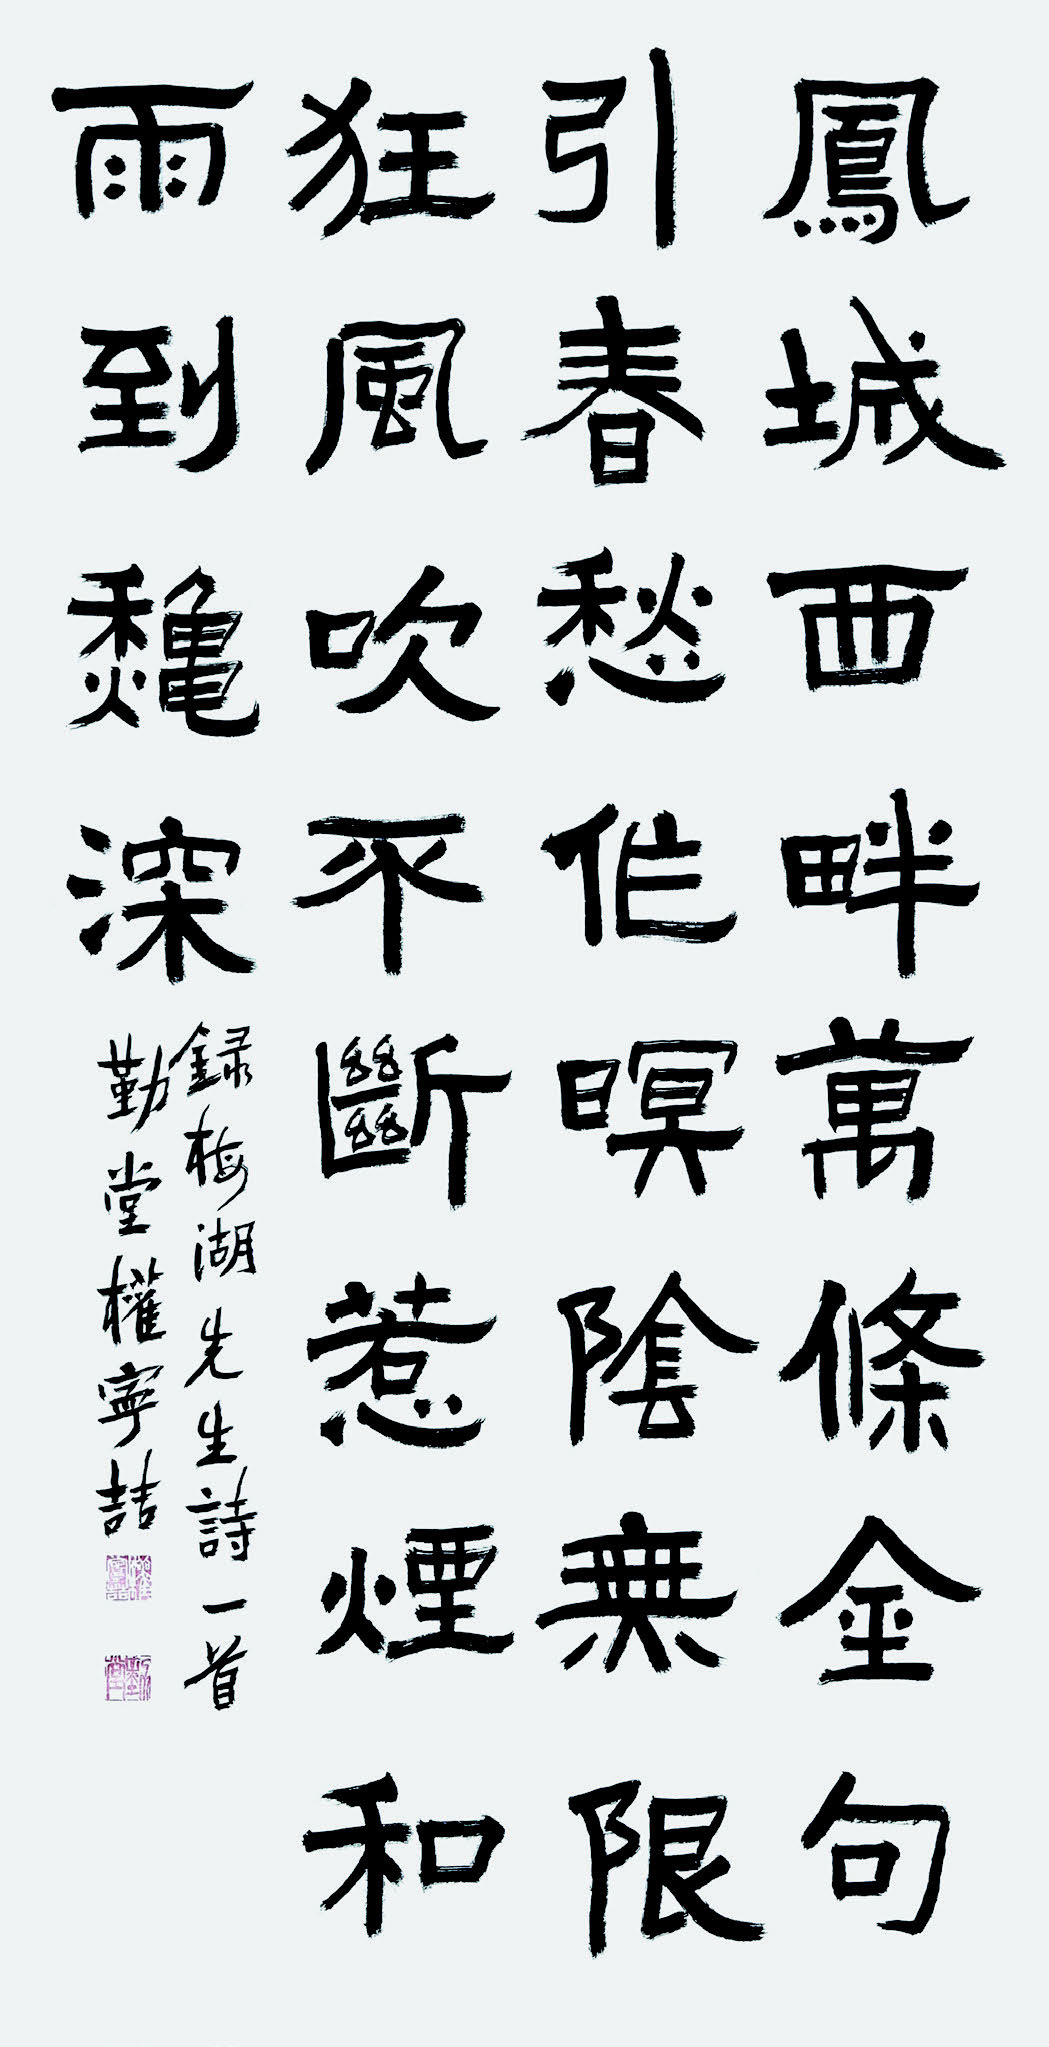 鳳城西畔萬條金句
引春愁作暝陰無限
狂風吹不斷惹煙和
雨到龝深
録梅湖先生詩一首
勤堂權寧喆